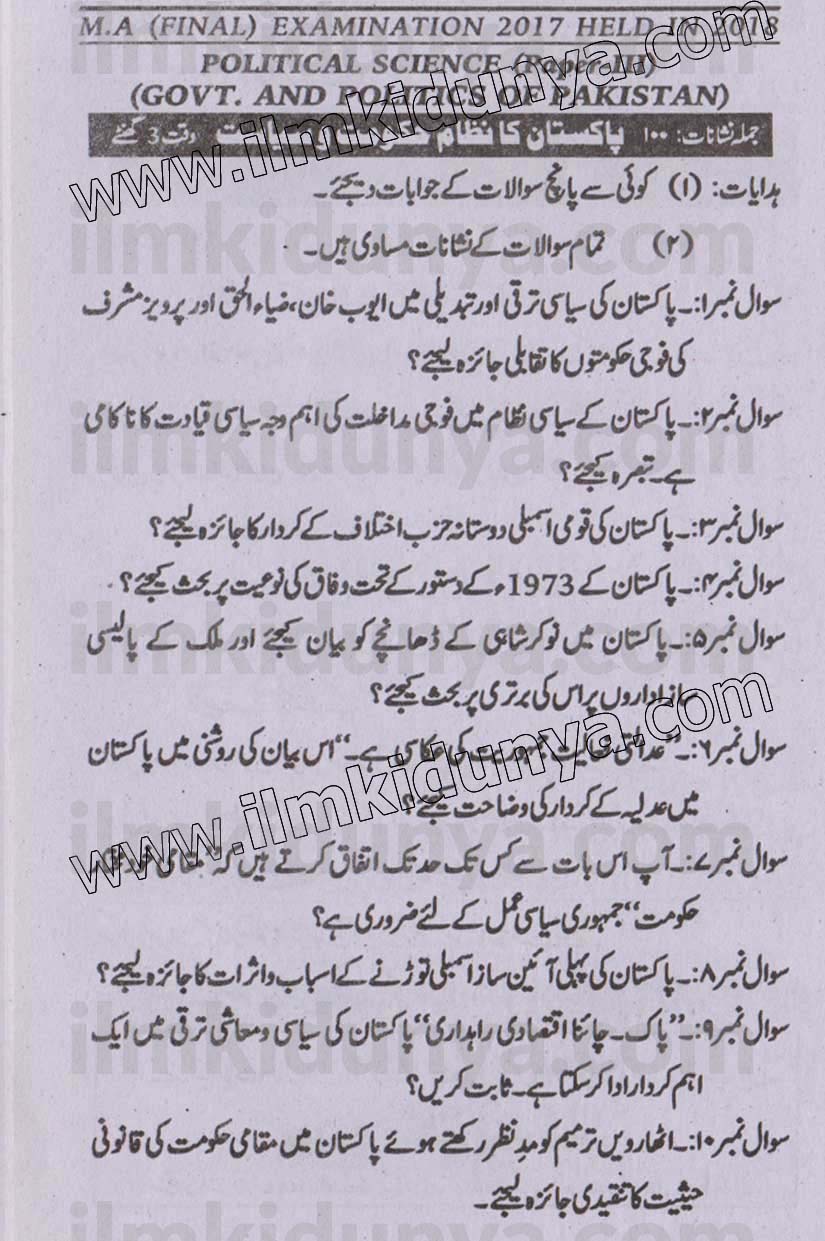 M.A (FINAL) EXAMINATION 2017 HELD IN 2018
POLITICAL SCIENCE (Paper-III)
(GOVT. AND POLITICS OF PAKISTAN)
جملہ نشانات: ۱۰۰ پاکستان کا نظام حکومت و سیاست وقت 3 گھنٹے
ہدایات: (۱) کوئی سے پانچ سوالات کے جوابات دیجئے۔
(۲) تمام سوالات کے نشانات مساوی ہیں۔
سوال نمبر۱:۔ پاکستان کی سیاسی ترقی اور تبدیلی میں ایوب خان، ضیاء الحق اور پرویز مشرف
کی فوجی حکومتوں کا تقابلی جائزہ لیجئے؟
سوال نمبر۲:۔ پاکستان کے سیاسی نظام میں فوجی مداخلت کی اہم وجہ سیاسی قیادت کا ناکامی
ہے۔ تبصرہ کیجئے؟
سوال نمبر۳:۔ پاکستان کی قومی اسمبلی دوستانہ حزب اختلاف کے کردار کا جائزہ لیجئے؟
سوال نمبر۴:۔ پاکستان کے 1973ء کے دستور کے تحت وفاق کی نوعیت پر بحث کیجئے؟
سوال نمبر۵:۔ پاکستان میں نوکر شاہی کے ڈھانچے کو بیان کیجئے اور ملک کے پالیسی
ساز اداروں پر اس کی برتری پر بحث کیجئے؟
سوال نمبر۶:۔ ”عدالتی فعالیت جمہوریت کی عکاسی ہے۔“ اس بیان کی روشنی میں پاکستان
میں عدلیہ کے کردار کی وضاحت کیجئے؟
سوال نمبر۷:۔ آپ اس بات سے کس تک حد تک اتفاق کرتے ہیں کہ ”مقامی
حکومت“ جمہوری سیاسی عمل کے لئے ضروری ہے؟
سوال نمبر۸:۔ پاکستان کی پہلی آئین ساز اسمبلی توڑنے کے اسباب و اثرات کا جائزہ لیجئے؟
سوال نمبر۹:۔ ”پاک۔ چائنا اقتصادی راہداری“ پاکستان کی سیاسی و معاشی ترقی میں ایک
اہم کردار ادا کر سکتا ہے۔ ثابت کریں؟
سوال نمبر۱۰:۔ اٹھارویں ترمیم کو مدِ نظر رکھتے ہوئے پاکستان میں مقامی حکومت کی قانونی
حیثیت کا تنقیدی جائزہ لیجئے۔
www.ilmkidunya.com
www.ilmkidunya.com
ilmkidunya.com
ilmkidunya.com
ilmkidunya.com
ilmkidunya.com
ilmkidunya.com
ilmkidunya.com